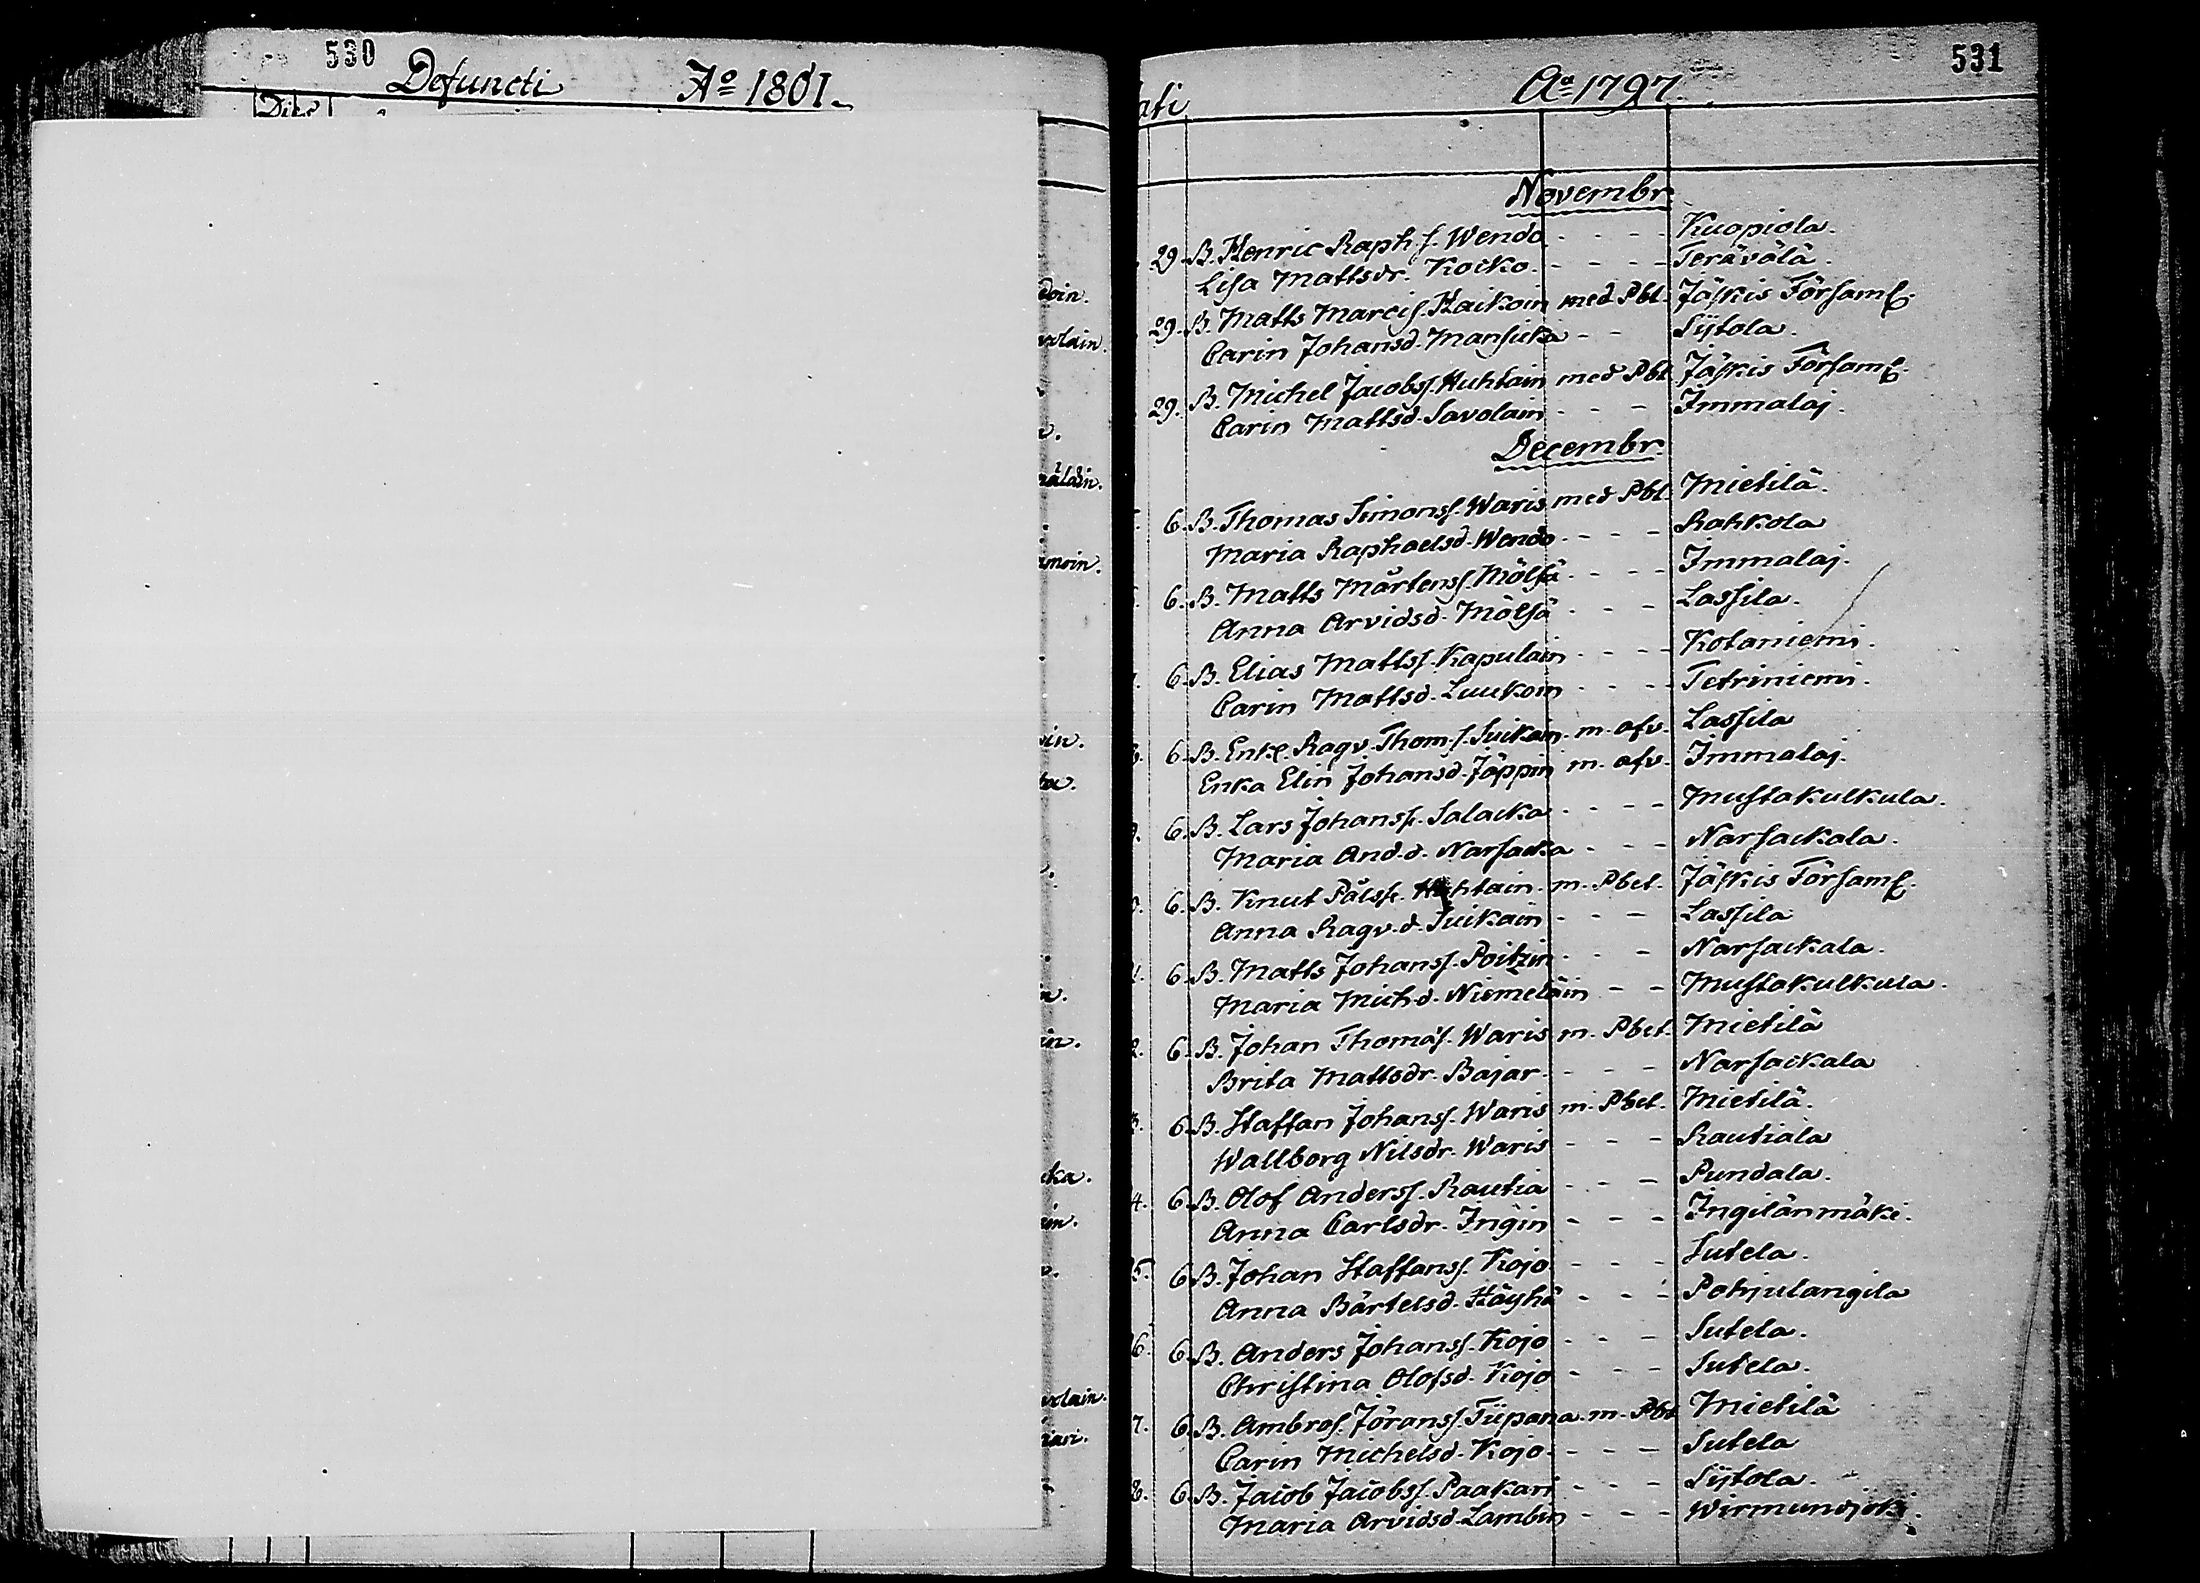 530
Defuncti Aº 1801.
Dies
531
ati Aº 1797.
Novembr.
29. B. Henric Raph. s. Wendo - - - - Kuopiola.
Lisa Mattsdr. Koiko. - - - - Terävälä.
29. B. Matts Marcis. Haikoin med Pbt. Jäskis Församl.
Carin Johansd. Mansicka - - Sijtola.
29. B. Michel Jacobss. Huhtain med Pbt. Jäskis Församl.
Carin Mattsd. Savolain - - - Immalaj.
Decembr.
6. B. Thomas Simonss. Waris med Pbt. Mietilä.
Maria Raphaelsd. Wendo - - - - Rahkola
6. B. Matts Mårtenss. Mölsä - - - - Immalaj.
Anna Arvidsd. Mölsä - - - Lassila.
6. B. Elias Mattss. Kapulain - - - - Kotaniemi.
Carin Mattsd. Luukoin - - - - Tetriniemi.
6. B. Enkl. Ragv. Thom. s. Suikain. m. afv. Lassila
Enka Elin Johansd. Jäppin m. afv. Immalaj.
6. B. Lars Johanss. Salacka - - - - Mustakulkula.
Maria And. d. Narsacka - - - Narsackala.
6. B. Knut Pålss. Huhtain. m. Pbet. Jäskis Församl.
Anna Ragv. d. Suikain - - - Lassila
6. B. Matts Johanss. Poitzin - - - Narsackala.
Maria Mich. d. Niemeläin - - Mustakulkula.
6. B. Johan Thomas. Waris m. Pbet. Mietilä
Brita Mattsdr. Bajar - - - - Narsackala
6. B. Staffan Johanss. Waris m. Pbet. Mietilä.
Wallborg Nilsdr. Waris - - - Rautiala
4. 6. B. Olof Anderss. Rautia - - - Pundala.
Anna Carlsdr. Ingin - - - Ingilänmäki.
5. 6. B. Johan Staffanss. Kojo - - - Sutela.
Anna Bärtelsd. Häyhä - - - Pohjulangila
6. 6. B. Anders Johanss. Kojo - - - Sutela.
Christina Olofsd. Kojo - - - Sutela.
7. 6. B. Ambros. Jöranss. Tiipana. m. Pbt Mietilä
Carin Michelsd. Kojo - - - - Sutela
8. 6. B. Jacob Jacobss. Paakari - - - Sijtola.
Maria Arvidsd. Lambin - - - Wirmundjoki.